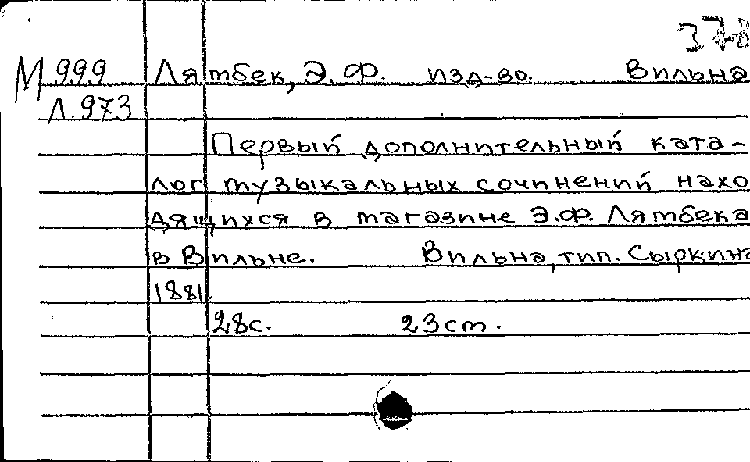 378
М 999 Лятбек, Э.Ф. изд-во. Вильна
Л.973
Первый дополнительный ката-
лог музыкальных сочинений нахо
дящихся в магазине Э.Ф. Лятбека
в Вильне. Вильна, тип. Сыркина
1881
28с. 23cm.